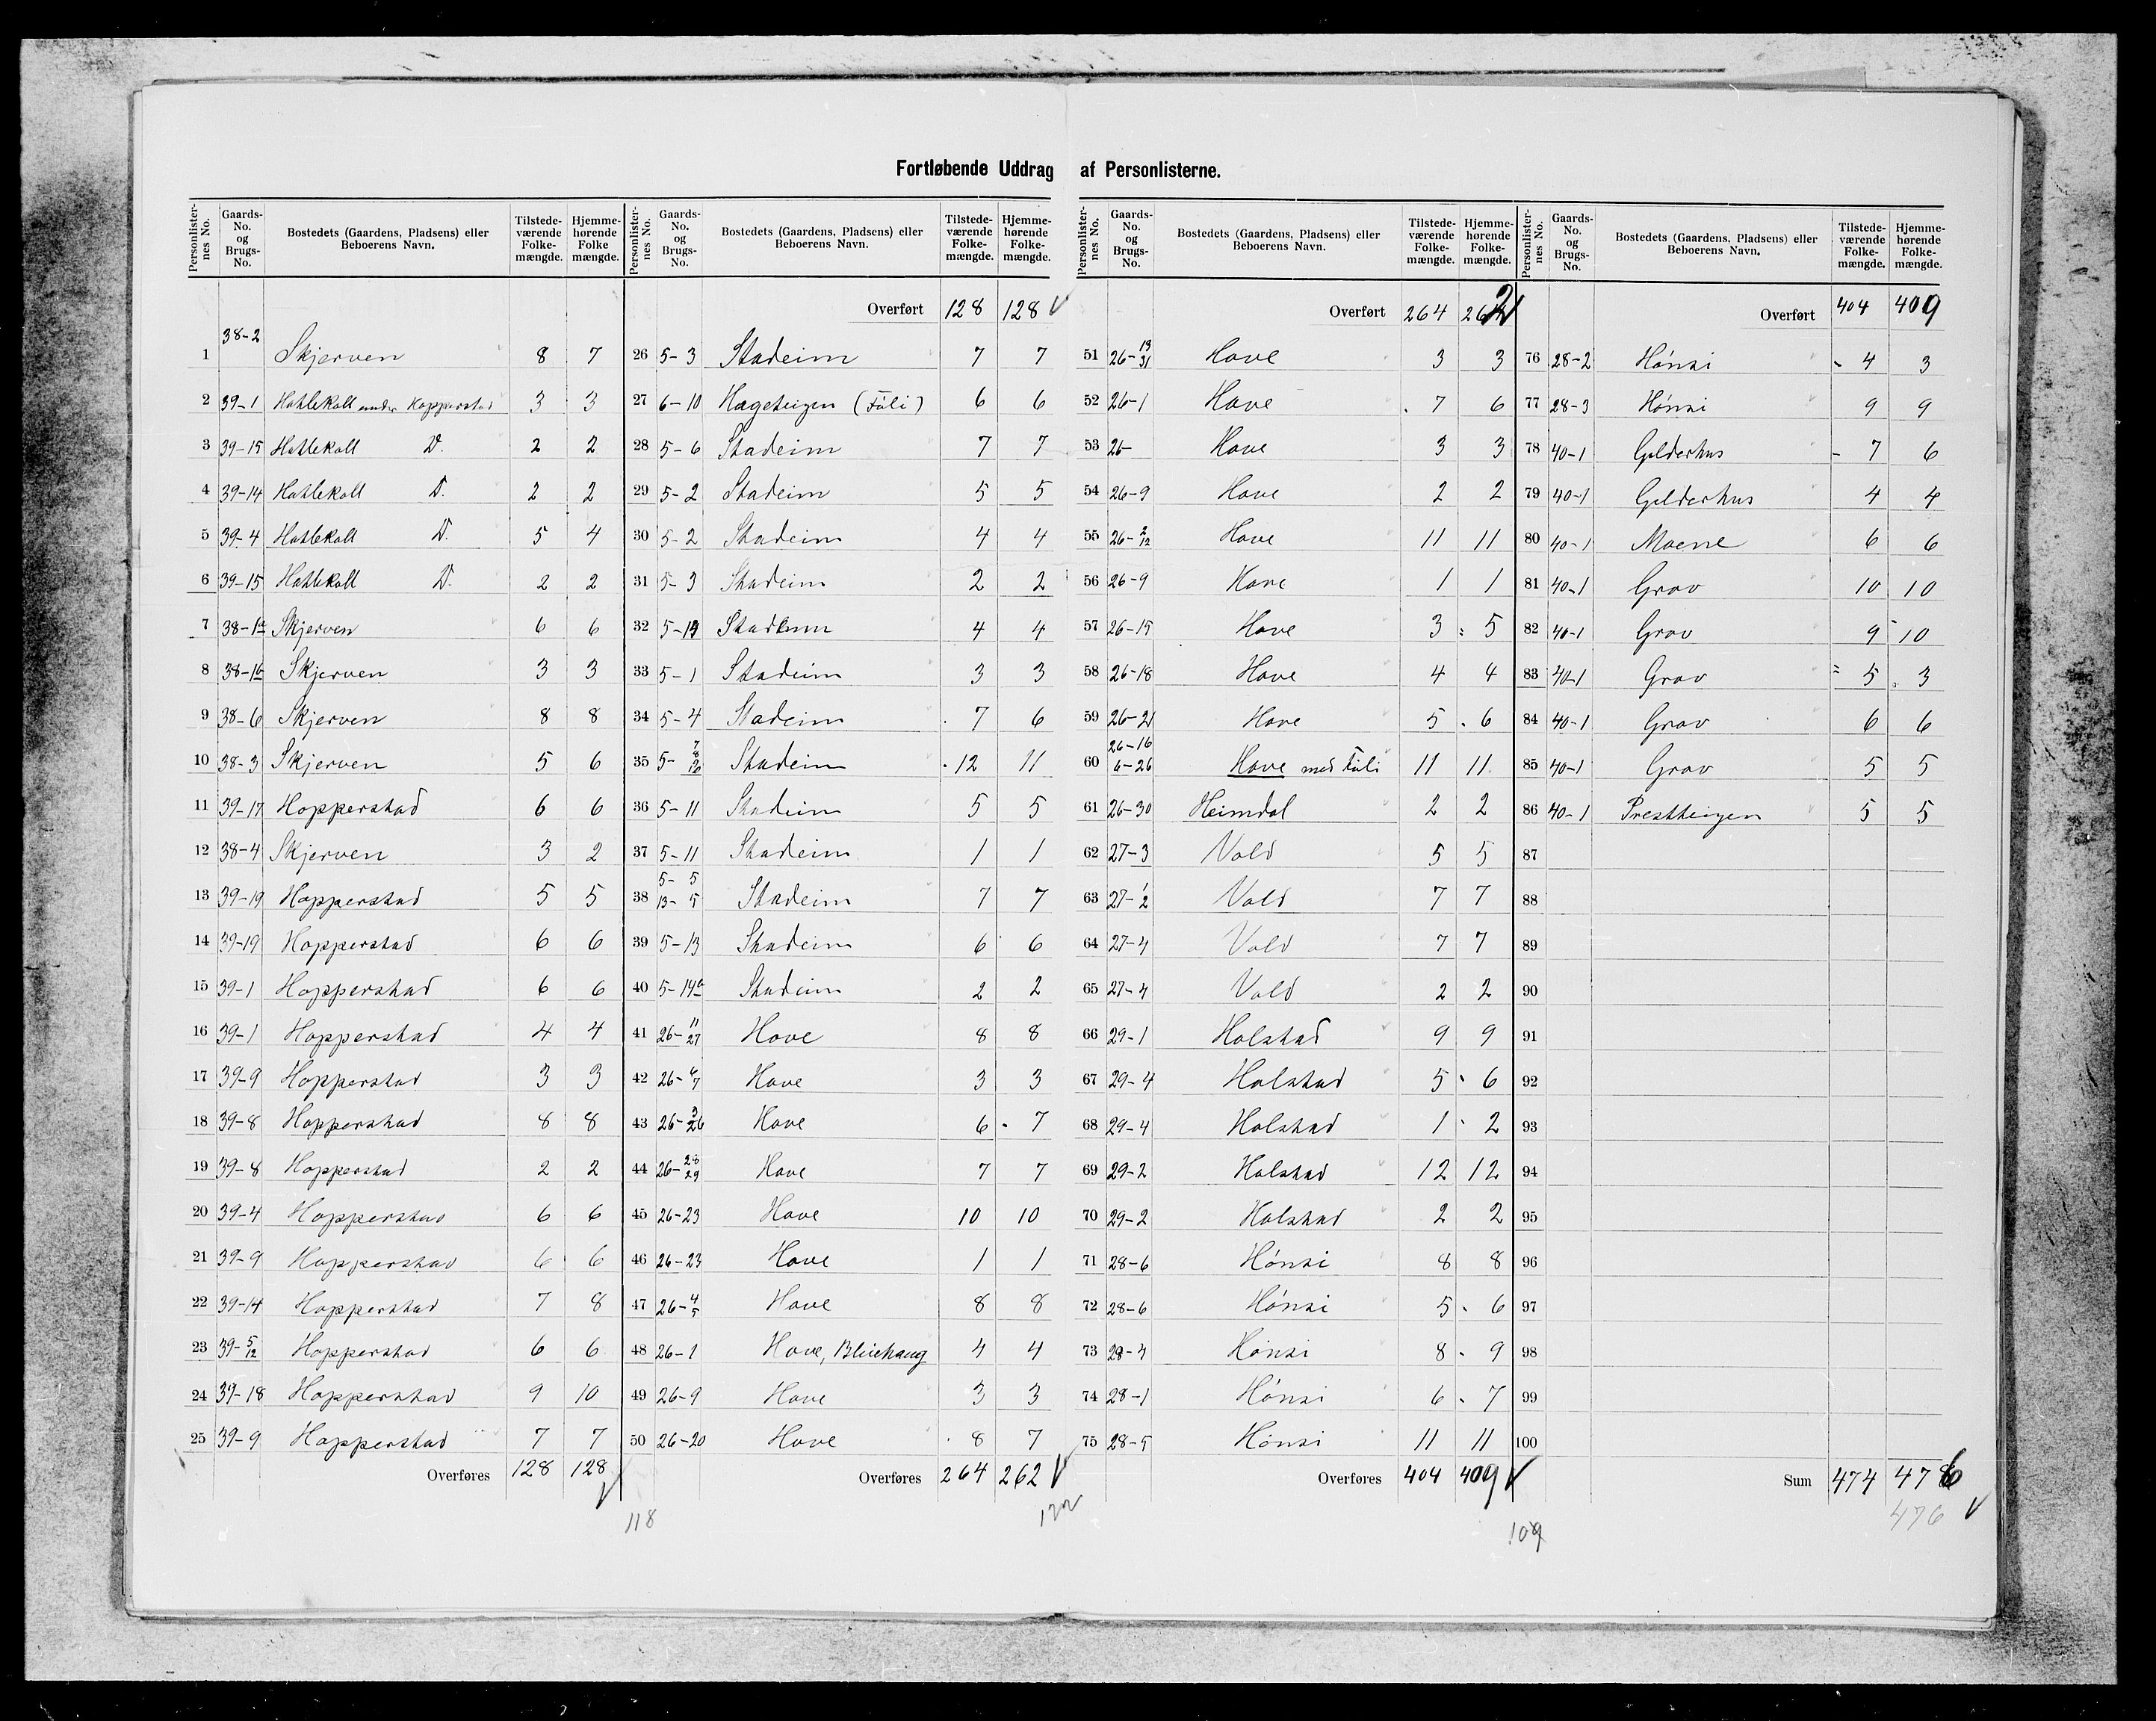 Fortløbende Uddrag af Personlisterne.
Personlisternes No. Gaards-No. og Brugs-No. Bostedets (Gaardens, Pladsens) eller Beboerens Navn. Tilstedeværende Folkemængde. Hjemmehørende Folkemængde.
1 38-2 Skjerven 8 7
2 39-1 Hatlekoll under Hopperstad 3 3
3 39-15 Hatlekoll D. 2 2
4 39-14 Hatlekoll D. 2 2
5 39-4 Hatlekoll D. 5 4
6 39-15 Hatlekoll D. 2 2
7 38-1a Skjerven 6 6
8 38-1b Skjerven 3 3
9 38-6 Skjerven 8 8
10 38-3 Skjerven 5 6
11 39-17 Hopperstad 6 6
12 38-4 Skjerven 3 2
13 39-19 Hopperstad 5 5
14 39-19 Hopperstad 6 6
15 39-1 Hopperstad 6 6
16 39-1 Hopperstad 4 4
17 39-9 Hopperstad 3 3
18 39-8 Hopperstad 8 8
19 39-8 Hopperstad 2 2
20 39-4 Hopperstad 6 6
21 39-9 Hopperstad 6 6
22 39-14 Hopperstad 7 8
23 39-5/12 Hopperstad 6 6
24 39-18 Hopperstad 9 10
25 39-9 Hopperstad 7 7
Overføres 128 128
118
Personlisternes No. Gaards-No. og Brugs-No. Bostedets (Gaardens, Pladsens) eller Beboerens Navn. Tilstedeværende Folkemængde. Hjemmehørende Folkemængde.
Overført 128 128
26 5-3 Stadeim 7 7
27 6-10 Hageteigen (Føli) 6 6
28 5-6 Stadeim 7 7
29 5-2 Stadeim 5 5
30 5-2 Stadeim 4 4
31 5-3 Stadeim 2 2
32 5- Stadeim 4 4
33 5-1 Stadeim 3 3
34 5-4 Stadeim 7 6
35 5-7/8 Stadeim 12 11
36 5-11 Stadeim 5 5
37 5-11 Stadeim 1 1
38 5-5 13-5 Stadeim 7 7
39 5-13 Stadeim 6 6
40 5-14a Stadeim 2 2
41 26-11/27 Hove 8 8
42 26-6/7 Hove 3 3
43 26-3/26 Hove 6 7
44 26-28/29 Hove 7 7
45 26-23 Hove 10 10
46 26-23 Hove 1 1
47 26-4/5 Hove 8 8
48 26-1 Hove, 4 4
49 26-9 Hove 3 3
50 26-20 Hove 8 7
Overføres 264 262
122
Personlisternes No. Gaards-No. og Brugs-No. Bostedets (Gaardens, Pladsens) eller Beboerens Navn. Tilstedeværende Folkemængde. Hjemmehørende Folkemængde.
Overført 264 262
51 26-13/31 Hove 3 3
52 26-1 Hove 7 6
53 26- Hove 3 3
54 26-9 Hove 2 2
55 26-2/12 Hove 11 11
56 26-9 Hove 1 1
57 26-15 Hove 3 5
58 26-18 Hove 4 4
59 26-21 Hove 5 6
60 26-16 6-26 Hove med Føli 11 11
61 26-30 Heimdal 2 2
62 27-3 Vold 5 5
63 27-1/2 Vold 7 7
64 27-4 Vold 7 7
65 27-4 Vold 2 2
66 29-1 Holstad 9 9
67 29-4 Holstad 5 6
68 29-4 Holstad 1 2
69 29-2 Holstad 12 12
70 29-2 Holstad 2 2
71 28-6 Hønsi 8 8
72 28-6 Hønsi 5 6
73 28-4 Hønsi 8 9
74 28-1 Hønsi 6 7
75 28-5 Hønsi 11 11
Overføres 404 409
109
Personlisternes No. Gaards-No. og Brugs-No. Bostedets (Gaardens, Pladsens) eller Beboerens Navn. Tilstedeværende Folkemængde. Hjemmehørende Folkemængde.
Overført 404 409
76 28-2 Hønsi 4 3
77 28-3 Hønsi 9 9
78 40-1 Gelderhus 7 6
79 40-1 Gelderhus 4 4
80 40-1 Moene 6 6
81 40-1 Grov 10 10
82 40-1 Grov 9 10
83 40-1 Grov 5 3
84 40-1 Grov 6 6
85 40-1 Grov 5 5
86 40-1 Prestteigen 5 5
87
88
89
90
91
92
93
94
95
96
97
98
99
100
Sum 474 476
476